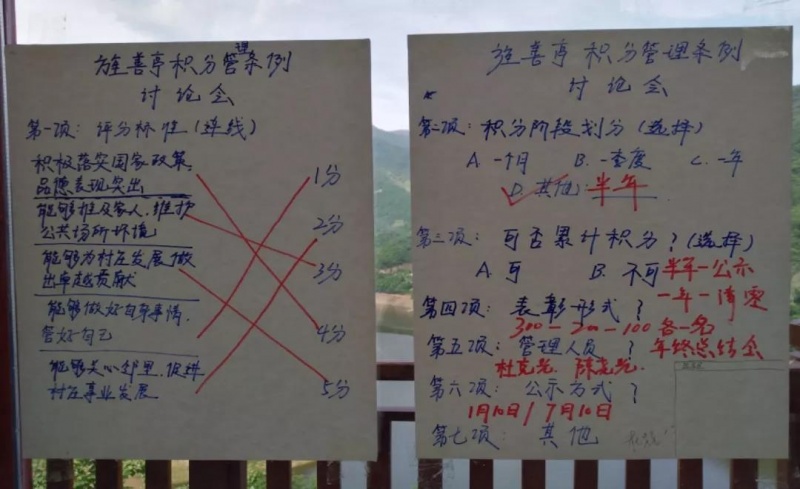 旌善亭积分管理条例
讨论会
第一项：评分标准（连线）
积极落实国家政策，
品德表现突出
1分
能够推及家人，维护
公共场所环境
2分
能够为村庄发展做
出卓越贡献
3分
能够做好自身事情，
管好自己
4分
能够关心邻里，促进
村庄事业发展
5分
旌善亭积分管理条例
讨论会
第二项：积分阶段划分（选择）
A. 一个月 B. 一季度 C. 一年
D. 其他：半年
第三项：可否累计积分？（选择）
A. 可 B. 不可 半年一公示
一年一清零
第四项：表彰形式？
300－200－100各一名
年终总结会
第五项：管理人员？
杜克光 陈克光
第六项：公示方式？
1月10日/7月10日
第七项：其他